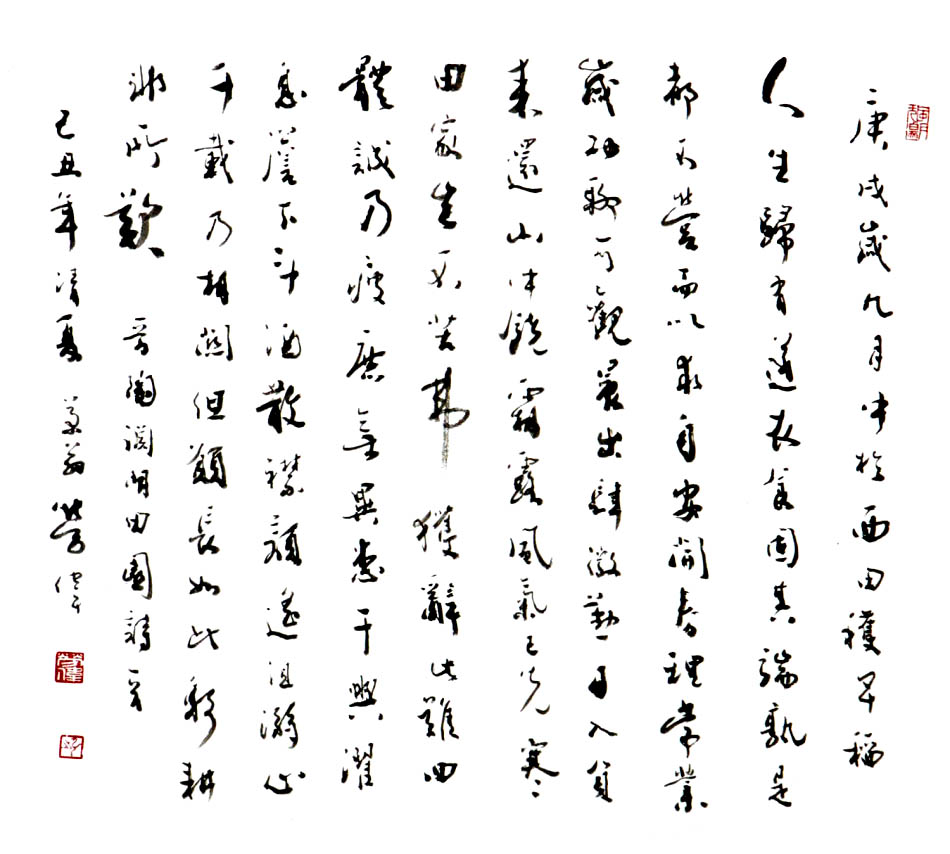 庚戌歲九月中於西田穫早稻
人生歸有道衣食固其端孰是
都不營而以求自安開春理常業
歲功聊可觀晨出肆微勤日入負
耒還山中饒霜露風氣亦先寒
田家豈不苦弗獲辭此難四
體誠乃疲庶無異患干盥濯
息簷下斗酒散襟顏遙沮溺心
千載乃相關但願長如此躬耕
非所歎 晉陶淵明田園詩一首
己丑年清夏 翁 偉